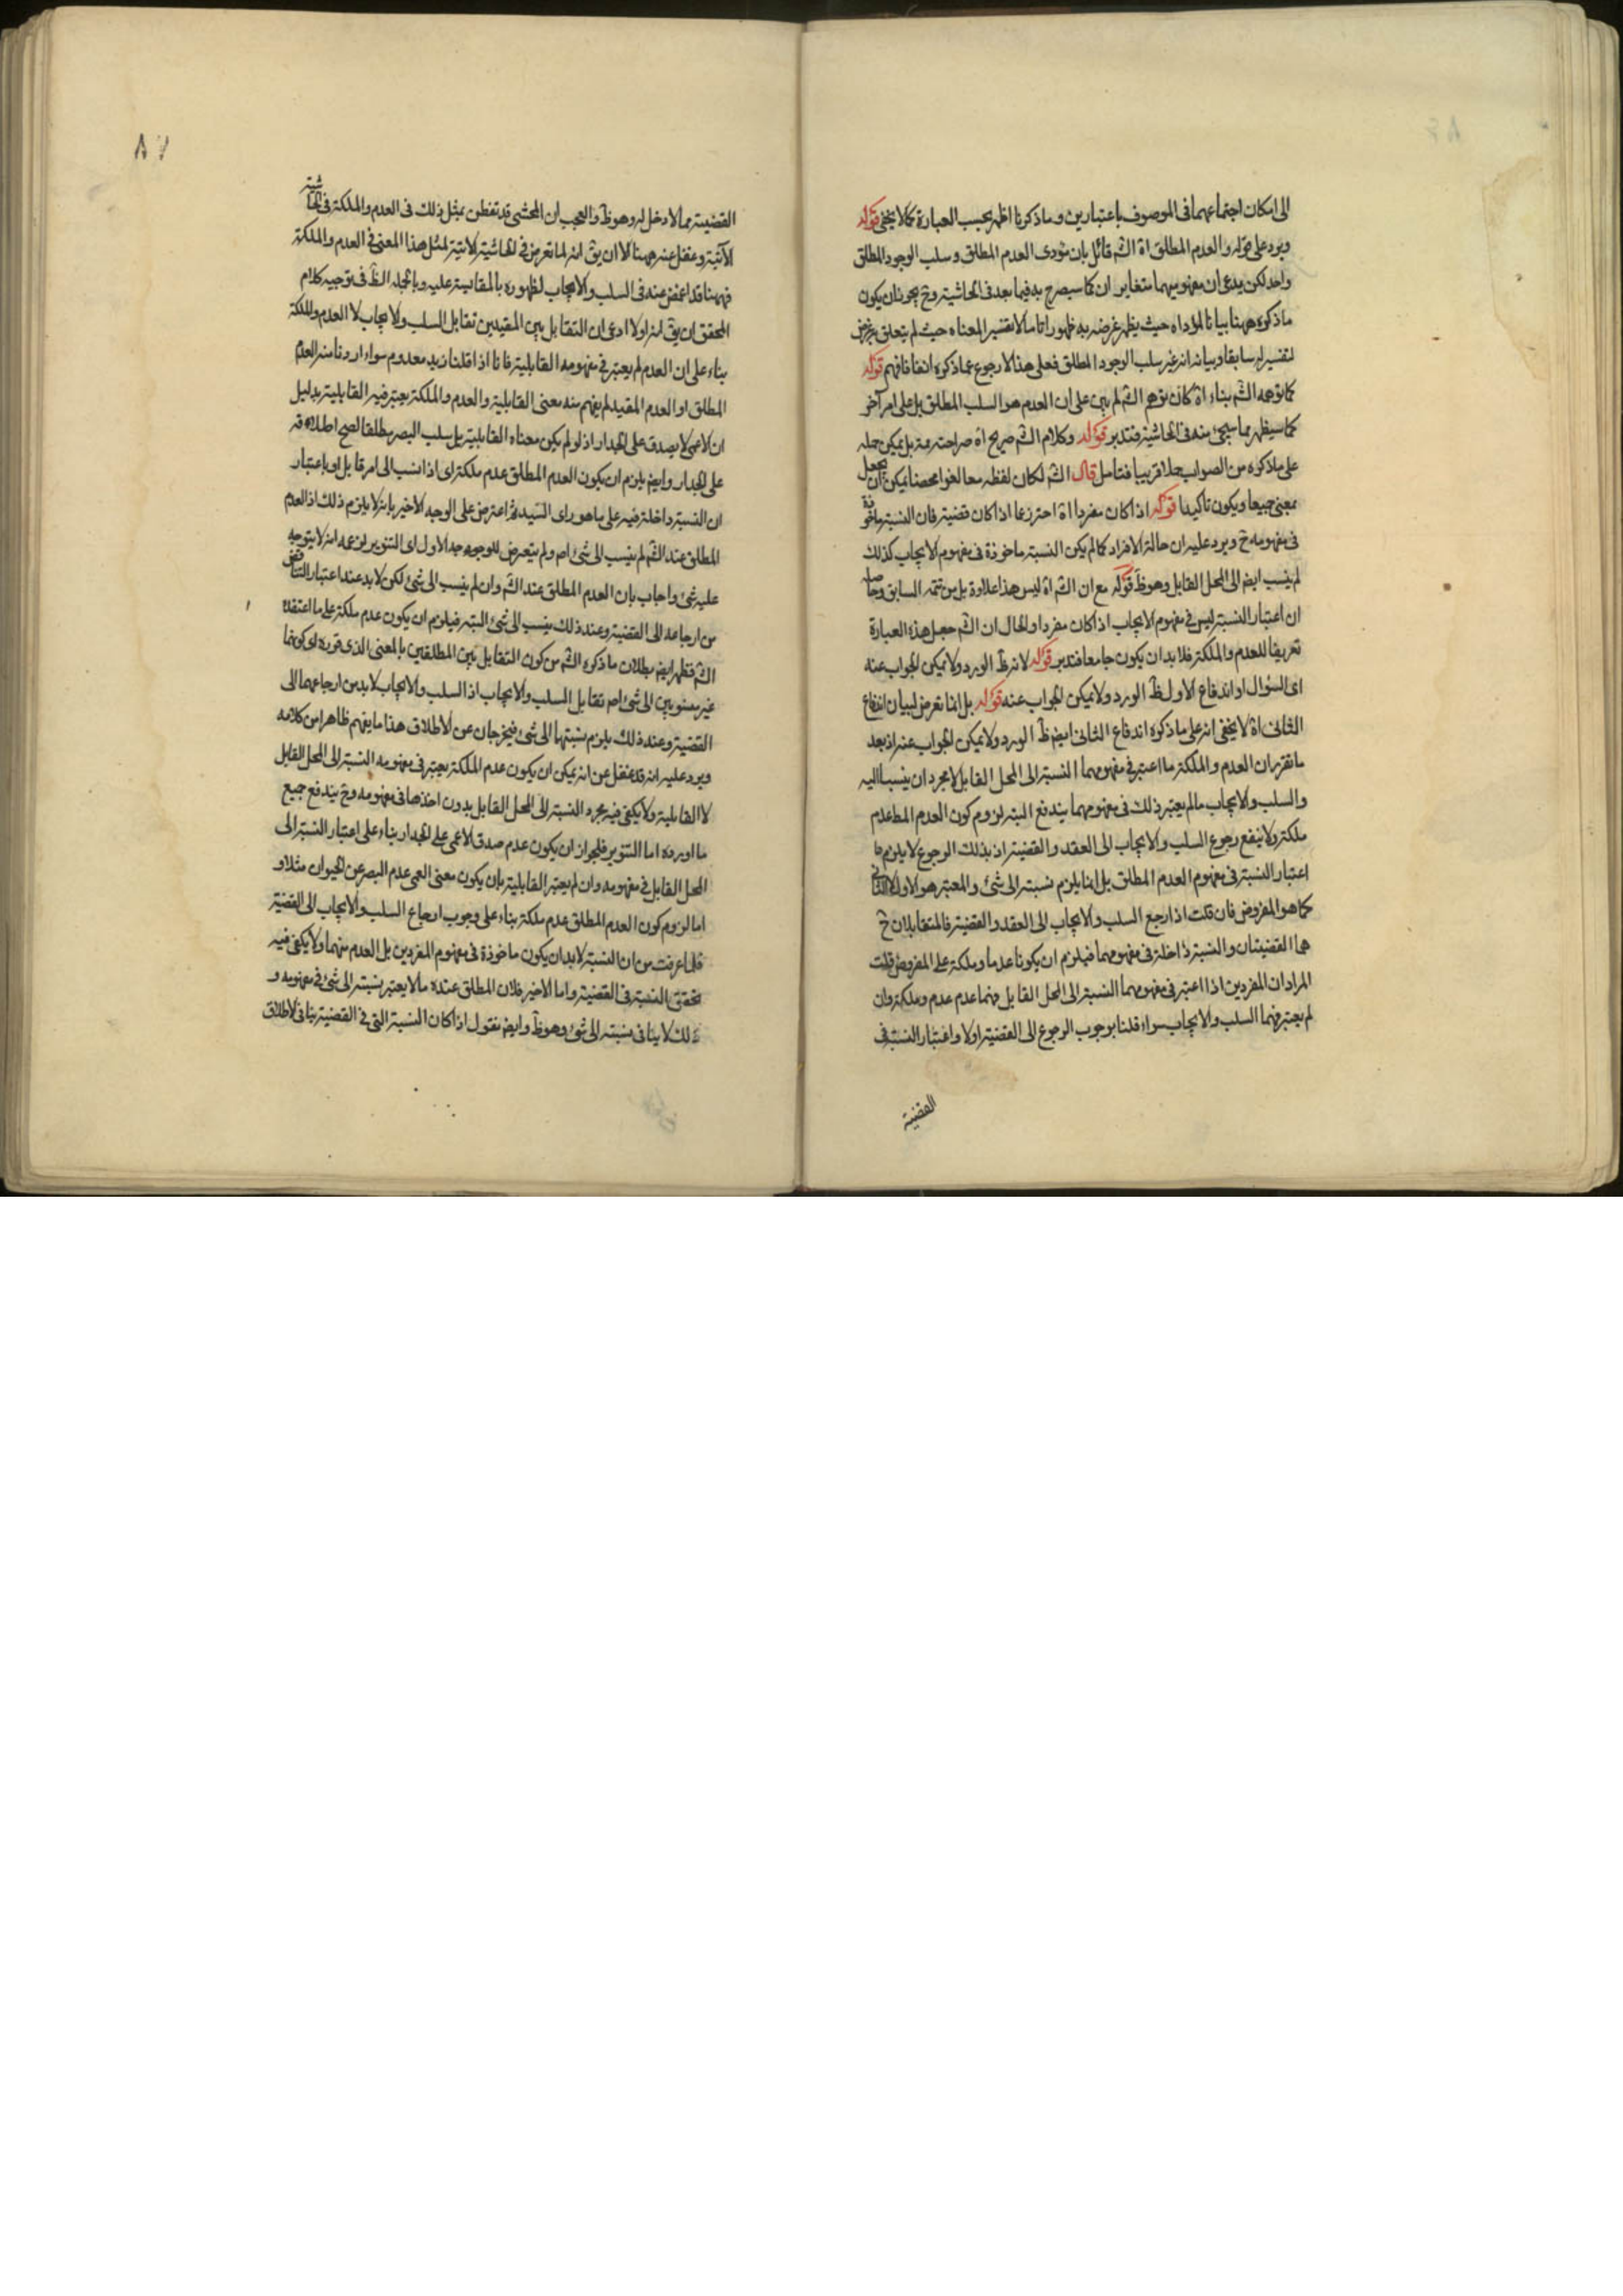 الى امكان اجتماعهما فى الموصوف باعتبارين وما ذكرنا اظهر بحسب العبارة كما لا يخفى قوله
ويرد على قوله والعدم المطلق اه الش قائل بان مؤدى العدم المطلق وسلب الوجود المطلق
واحد لكن يدعى ان مفهوميهما متغايران كما سيصرح به فيما بعد فى الحاشية وح يجوز ان يكون
ما ذكره ههنا بيانا لمؤداه حيث يظهر غرضه به ظهورا تاما لا تفسير المعناه حيث لم يتعلق غرض
لتفسيره سابقا وبيانه انه غير سلب الوجود المطلق فعلى هذا لا رجوع عما ذكره انفا فافهم قوله
كما توهمه الش بناء اه كان توهم الش لم يبن على ان العدم هو السلب المطلق بل على امر آخر
كما سيظهر مما سيجئ منه فى الحاشية فتدبر قوله وكلام الش صريح اه صراحته مم بل يمكن حمله
على ما ذكره من الصواب حملا قريبا فتامل قال الش لكان لفظه معا لغوا محضا يمكن ان يجعل
بمعنى جميعا ويكون تأكيدا قوله اذا كان مفردا اه احترز عما اذا كان قضية فان النسبة ماخوذة
فى مفهومه ح ويرد عليه ان حالة الافراد كما لم يكن النسبة ماخوذة فى مفهوم الايجاب كذلك
لم ينسب ايض الى المحل القابل وهو ظ قوله مع ان الش اه ليس هذا علاوة بل من تتمة السابق وحاصله
ان اعتبار النسبة ليس فى مفهوم الايجاب اذا كان مفردا والحال ان الش جعل هذه العبارة
تعريفا للعدم والملكة فلا بد ان يكون جامعا فتدبر قوله لانه ظ الورد ولا يمكن الجواب عنه
اى السؤال او اندفاع الاول ظ الورد ولا يمكن الجواب عنه قوله بل انما تعرض لبيان اندفاع
الثانى اه لا يخفى انه على ما ذكره اندفاع الثانى ايض ظ الورد ولا يمكن الجواب عنه اذ بعد
ما تقرر ان العدم والملكة ما اعتبر فى مفهومهما النسبة الى المحل القابل لا مجرد ان ينسبا اليه
والسلب والايجاب ما لم يعتبر ذلك فى مفهومهما يندفع البتة لزوم كون العدم المط عدم
ملكة ولا ينفع رجوع السلب والايجاب الى العقد والقضية اذ بذلك الرجوع لا يلزم ما
اعتبار النسبة فى مفهوم العدم المطلق بل انما يلزم نسبته الى شئ والمعتبر هو الاول لا الثانى
كما هو المفروض فان قلت اذا رجع السلب والايجاب الى العقد والقضية فالمتقابلان ح
هما القضيتان والنسبة داخلة فى مفهومهما فيلزم ان يكونا عدما وملكة على المفروض قلت
المراد ان المفردين اذا اعتبر فى مفهومهما النسبة الى المحل القابل فهما عدم عدم وملكة وان
لم يعتبر فهما السلب والايجاب سواء قلنا بوجوب الرجوع الى القضية او لا واعتبار النسبة فى
القضية
٨٧
القضية مما لا دخل له وهو ظ والعجب ان المحشى قد تفطن بمثل ذلك فى العدم والملكة فى الحاشية
الآتية وغفل عنه ههنا الا ان يق انه لما تعرض فى الحاشية الاتية لمثل هذا المعنى فى العدم والملكة
فههنا قد اغمض عنه فى السلب والايجاب لظهوره بالمقايسة عليه وبالجملة الظ فى توجيه كلام
المحقق ان يق انه اولا ادعى ان التقابل بين المقيدين تقابل السلب والايجاب لا العدم والملكة
بناء على ان العدم لم يعتبر فى مفهومه القابلية فانا اذا قلنا زيد معدوم سواء اردنا منه العدم
المطلق او العدم المقيد لم يفهم منه معنى القابلية والعدم والملكة يعتبر فيه القابلية بدليل
ان الاعمى لا يصدق على الجدار اذ لو لم يكن معناه القابلية بل سلب البصر مطلقا لصح اطلاقه
على الجدار وايض يلزم ان يكون العدم المطلق عدم ملكة اى اذا نسب الى امر قابل او باعتبار
ان النسبة داخلة فيه على ما هو راى السيد ثم اعترض على الوجه الاخير بانه لا يلزم ذلك اذ العدم
المطلق عند الش لم ينسب الى شئ اصم ولم يتعرض للوجه الاول اى التنوير لزعمه انه لا يتوجه
عليه شئ واجاب بان العدم المطلق عند الش وان لم ينسب الى شئ لكن لا بد عند اعتبار التناقض
من ارجاعه الى القضية وعند ذلك ينسب الى شئ البتة فيلزم ان يكون عدم ملكة على ما اعتقده
الش فظهر ايض بطلان ما ذكره الش من كون التقابل بين المطلقين بالمعنى الذى قرره اى كونهما
غير منسوبين الى شئ اصم تقابل السلب والايجاب اذ السلب والايجاب لا بد من ارجاعهما الى
القضية وعند ذلك يلزم نسبتهما الى شئ فيخرجان عن الاطلاق هذا ما يفهم ظاهرا من كلامه
ويرد عليه انه قد غفل عن انه يمكن ان يكون عدم الملكة يعتبر فى مفهومه النسبة الى المحل القابل
لا القابلية ولا يكفى فيه مجرد النسبة الى المحل القابل بدون اخذها فى مفهومه وح يندفع جميع
ما اورده اما التنوير فلجواز ان يكون عدم صدق الاعمى على الجدار بناء على اعتبار النسبة الى
المحل القابل فى مفهومه وان لم يعتبر القابلية بان يكون معنى العمى عدم البصر عن الحيوان مثلا و
اما لزوم كون العدم المطلق عدم ملكة بناء على وجوب ارجاع السلب والايجاب الى القضية
فلما عرفت من ان النسبة لا بد ان يكون ماخوذة فى مفهوم المفردين بل العدم منهما ولا يكفى فيه
تحقق النسبة فى القضية واما الاخير فلان المطلق عنده ما لا يعتبر نسبته الى شئ فى مفهومه و
ذلك لا ينافى نسبته الى شئ وهو ظ وايض نقول اذا كان النسبة التى فى القضية ينافى الاطلاق